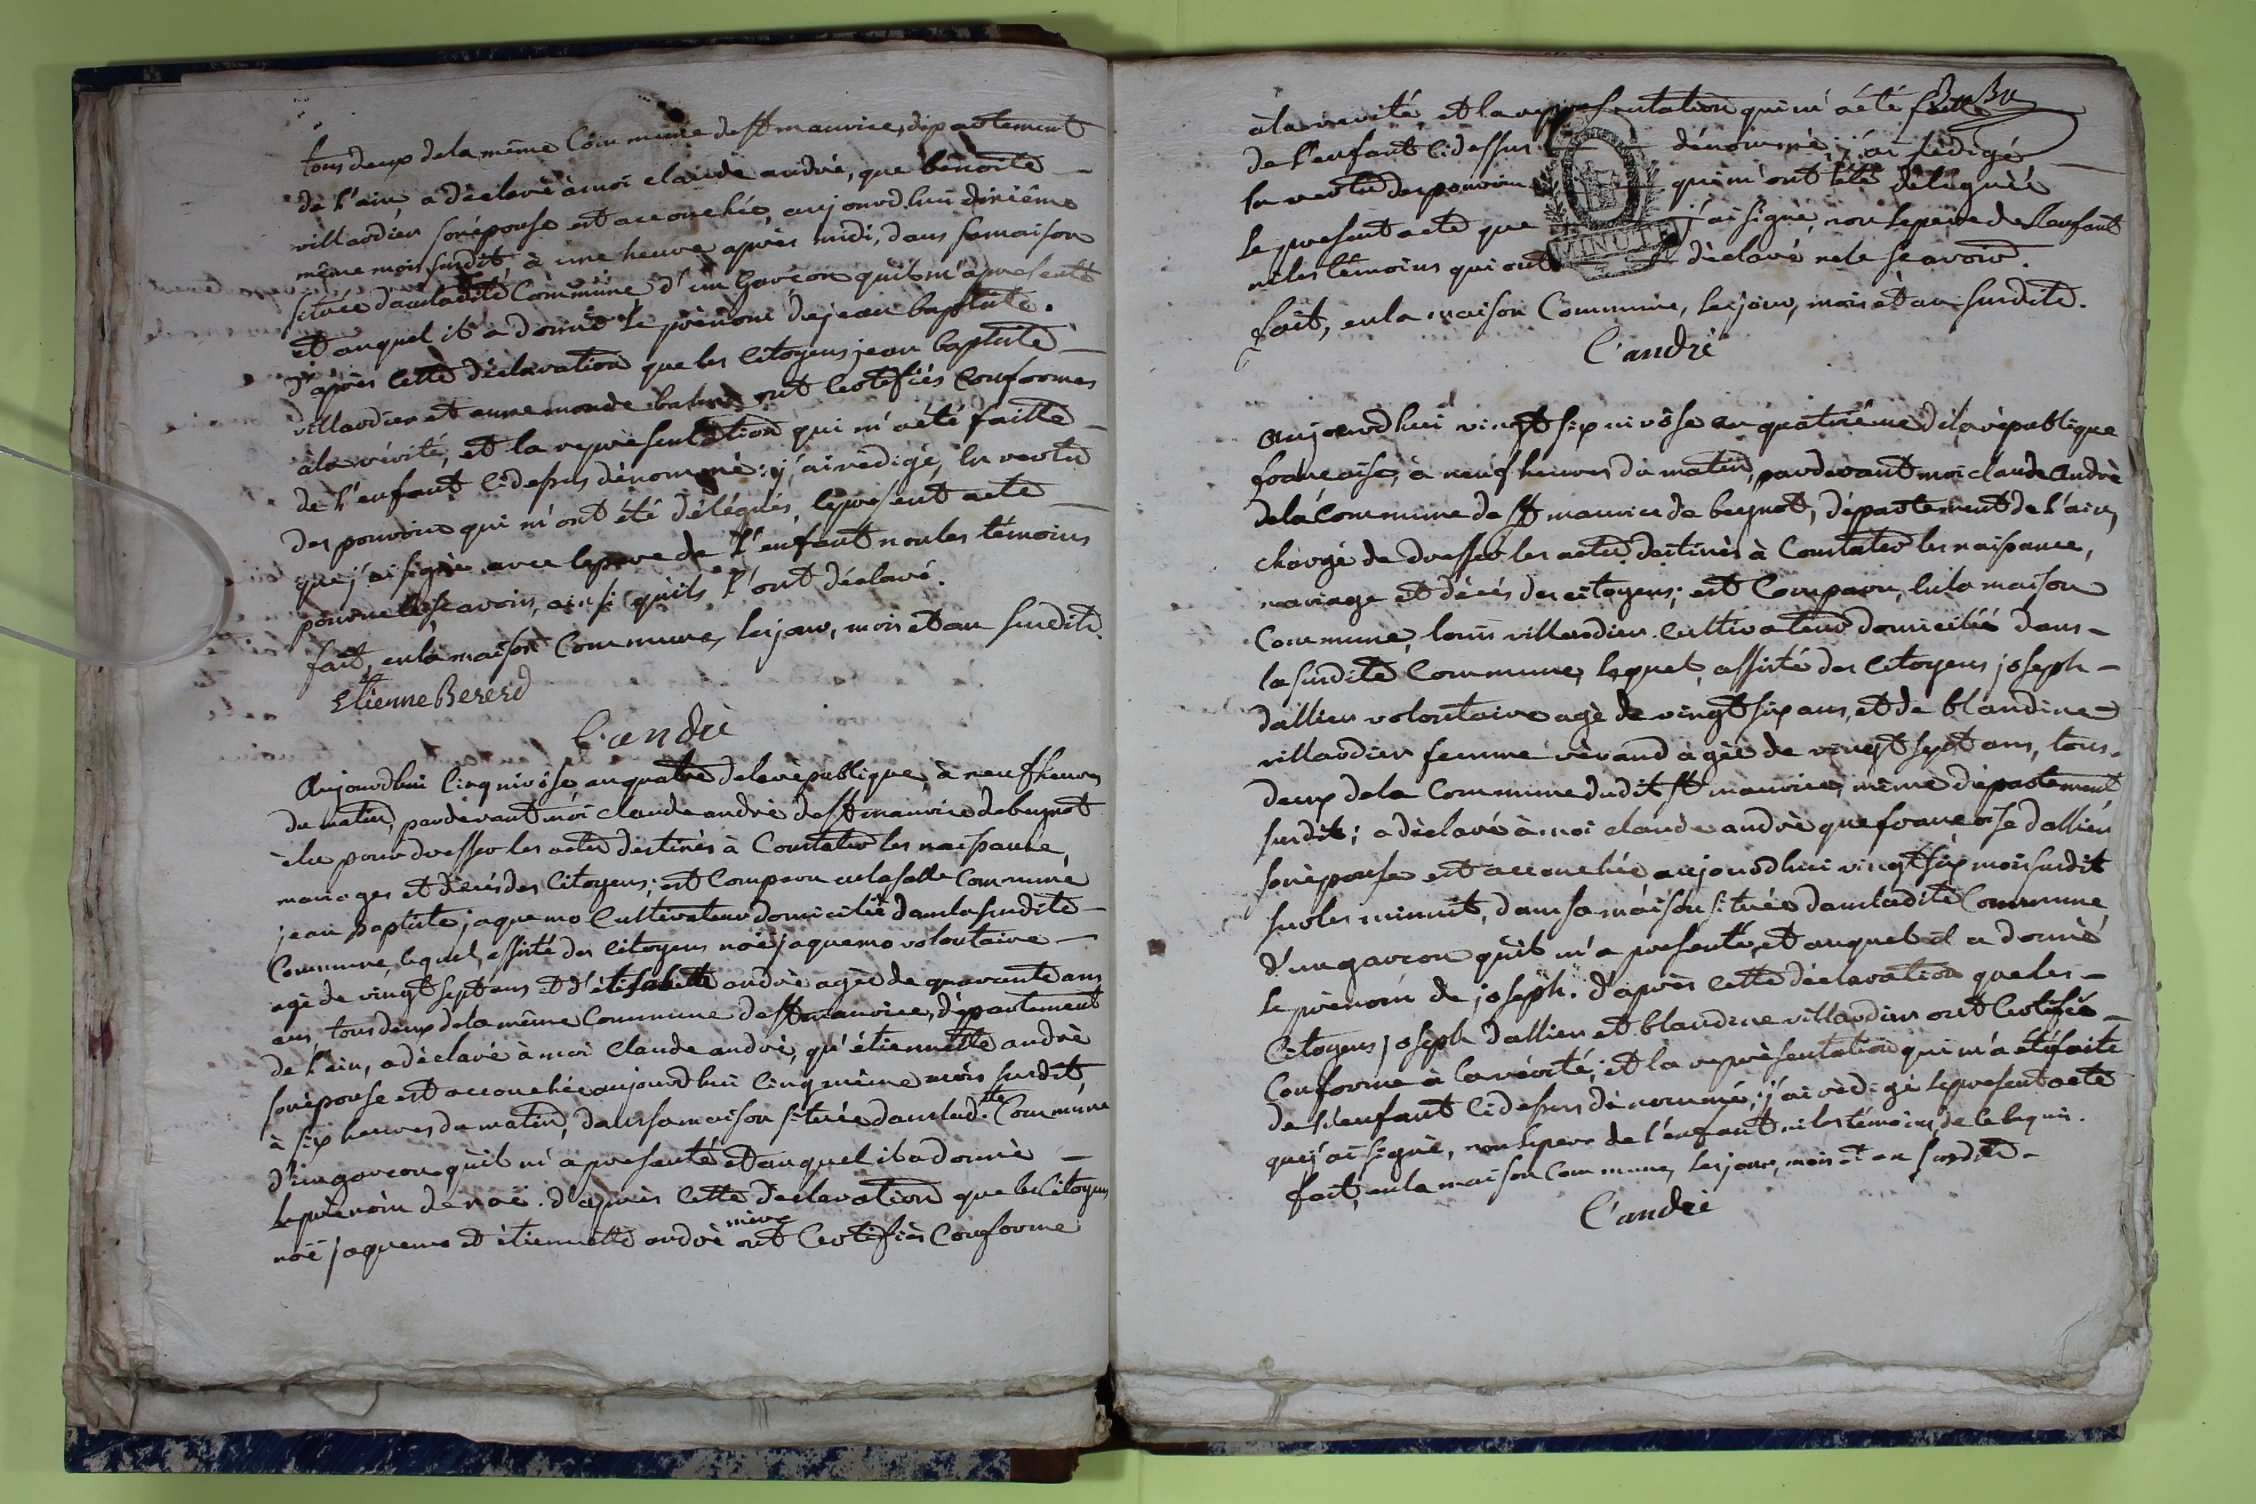 tous deux de la même Commune de st maurice, département
de l'ain a déclaré à moi claude andré, que benoite
villardier son épouse est accouchée, aujourdhui dixième
même mois susdit à une heure après midi, dans sa maison
située dans ladite Commune d'un garcon quil m'a presenté
et auquel il a donné le prénom de jean baptiste.
d'après cette déclaration que les Citoyens jean baptiste
villardier et anne monde ont Certifiés Conformes
à la vérité, et la représentation qui m'a été faitte
de l'enfant Cidessus dénommé; j'ai rédigé, En vertu
des pouvoirs qui m'ont été délégués, le present acte
que j'ai signé avec le pere de l'enfant non les témoins
pour ne le scavoir, ainsi quils l'ont déclaré.
fait, en la maison Commune, les jour, mois et an susdits.
Etienne Bererd
C. andré
Aujourdhui Cinq nivôse an quatre de la république, à neuf heures
du matin, pardevant moi claude andré de st maurice de beynot
élu pour dresser les actes destinés à Constater les naissance,
mariages et décés des Citoyens; est Comparu en la salle Commune
jean baptiste jaquemo Cultivateur domicilié dans la susdite
Commune, lequel, assisté des Citoyens noë jaquemo volontaire
agé de vingt sept ans et d'élisabette andré agée de quarante ans
ans, tous deux de la même Commune de st maurice, département
de l'ain, a déclaré à moi Claude andré, qu'étiennette andré
son épouse est accouchée aujourdhui Cinq même mois susdit,
à six heures du matin, dans sa maison située dans lad.tte Commune
d'un garcon quil m'a presenté et auquel il a donné
le prénom de noë. d'après cette déclaration que les Citoyens
noë jaquemo et étiennette andré mère ont Certifiés Conforme
à la vérité et la representation qui m'a été faitte
de l'enfant Cidessus dénommé, j'ai rédigé
En vertu des pouvoirs qui m'ont été délégués
le present acte que j'ai signé, non le pere de l'enfant
ni les témoins qui ont déclaré ne le scavoir.
MINUTE
fait, en la maison Commune, les jour, mois et an susdits.
C. andré
Aujourdhui vingt six nivôse an quatrième de la république
francaise, à neuf heures du matin, pardevant moi claude André
de la Commune de st maurice de beynot, département de l'ain,
chargé de dresser les actes destinés à Constater les naissance,
mariage et décés des citoyens; est Comparu, en la maison
Commune, louis villardier Cultivateur domicilié dans
la susdite Commune, lequel, assisté des Citoyens joseph
dallien volontaire agé de vingt six ans, et de blandine
villardier femme vérand agée de vingt sept ans, tous
deux de la Commune dudit st maurice, même département
susdit; a déclaré à moi claude andré que francoise dallien
son épouse est accouchée aujourdhui vingt six mois susdit
sur les minuit, dans sa maison située dans ladite Commune
d'un garcon quil m'a presenté, et auquel il a donné
le prénom de joseph. d'après cette déclaration que les
Citoyens joseph dallien et blandine villardier ont Certifié
Conforme à la vérité; et la représentation qui m'a été faite
de l'enfant Cidessus dénommé; j'ai rédigé le present acte
que j'ai signé, non le pere de l'enfant ni les témoins, de ce requis.
fait, en la maison Commune, les jour, mois et an susdits.
C. andré